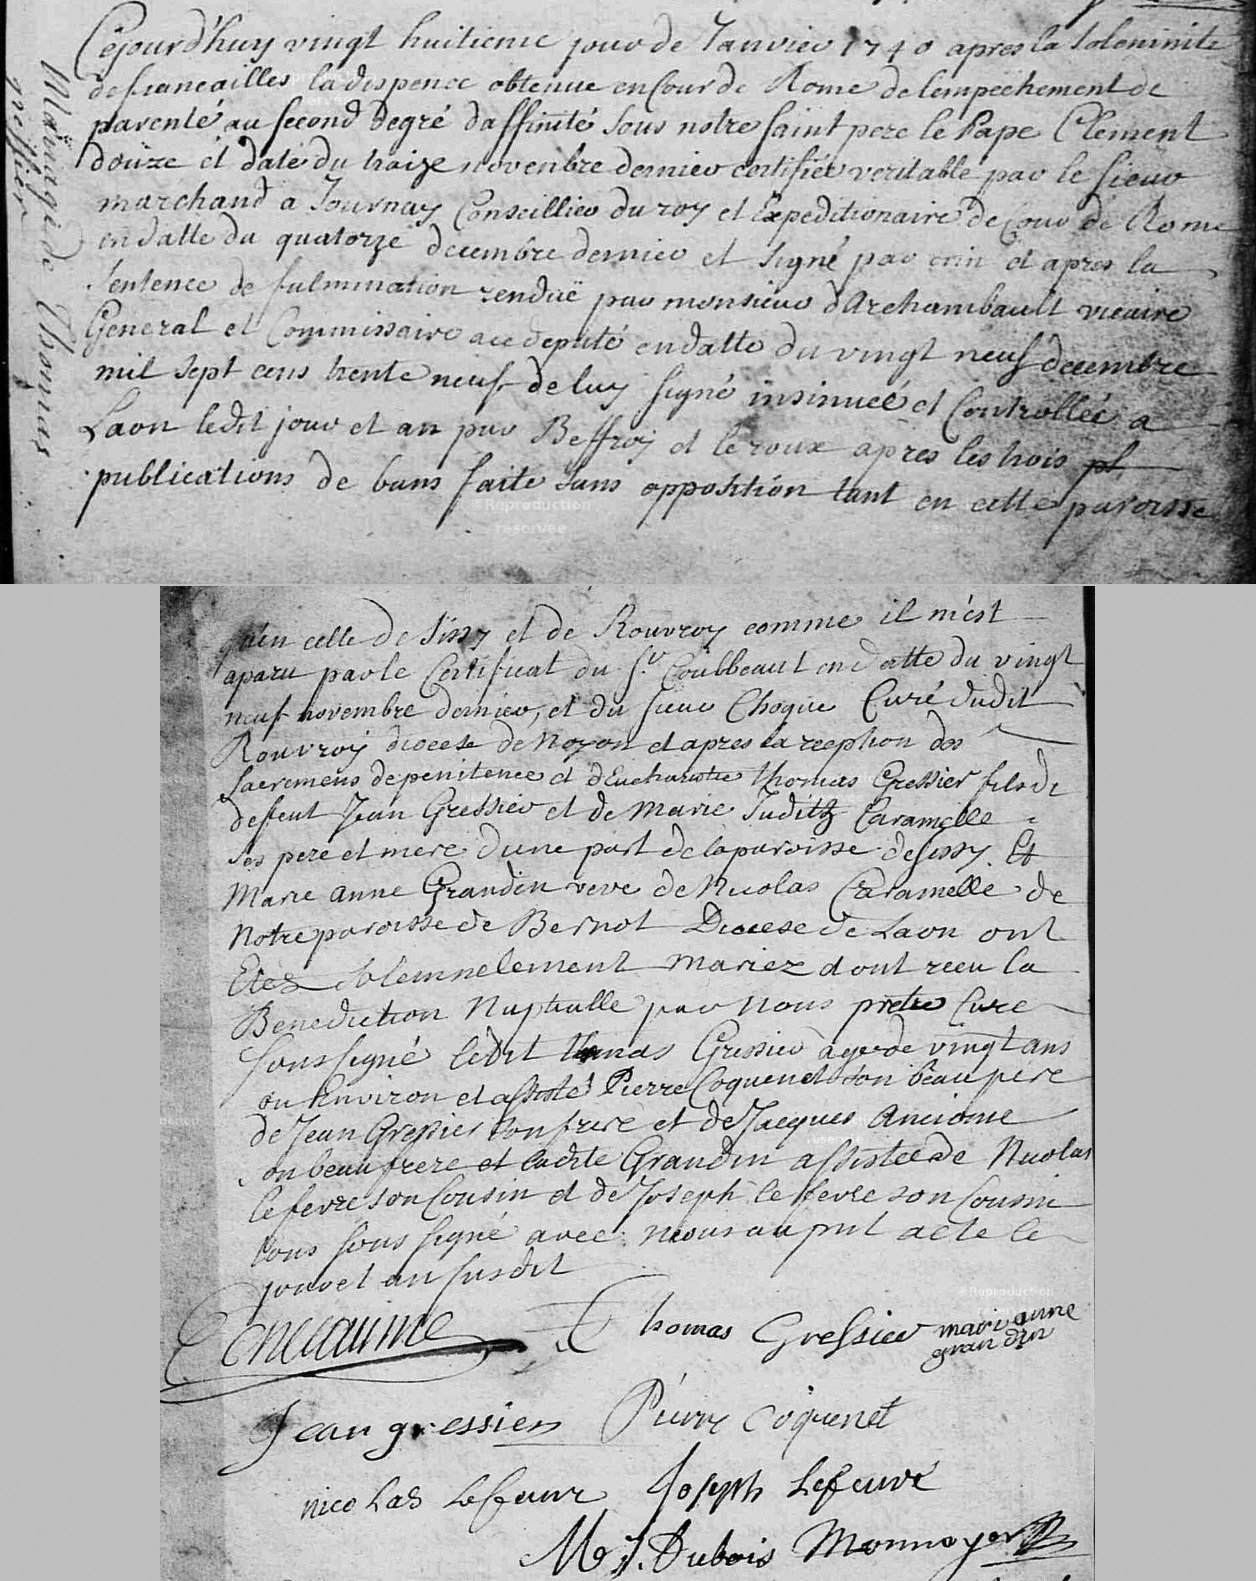 Cejourd'huy vingt huitieme jour de Janvier 1740 apres la solemnité
de fiancailles la dispence obtenue en Cour de Rome de lempechement de
parenté au second degré daffinité sous notre saint pere le Pape Clement
douze et daté du traize novembre dernier certifiée veritable par le sieur
marchand a Tournay Conseillier du roy et Expeditionaire de Cour de Rome
en datte du quatorze decembre dernier et signé par et apres la
sentence de fulmination rendüe par monsieur dArchambault vicaire
General et Commissaire a ce deputé en datte du vingt neuf decembre
mil sept cens trente neuf de luy signé insinuée et Controllée a
Laon ledit jour et an par Beffroy et le roux apres les trois
publications de bans faite sans opposition tant en cette paroisse
Mariage de Thomas
gressier
qu'en celle de Sissy et de Rouvroy comme il m'est
aparu par le Certificat du Sr. Coubbeaut en datte du vingt
neuf novembre dernier, et du sieur Choque Curé dudit
Rouvroy diocese de Noyon et apres la reception des
sacremens de penitence et dEucharistie thomas Gressier fils de
defeut Jean Gressier et de Marie Judith Caramelle
ses pere et mere d'une part de la paroisse de sissy. Et
Marie anne Grandin veve de Nicolas Caramelle de
Notre paroisse de Bernot Diocese de Laon ont
Etez solemnelement mariez et ont receu la
Benediction Nuptialle par Nous pretre Curé
soussigné ledit thomas Gressier agé de vingt ans
ou Environ et assisté Pierre Coquenet son beau pere
de Jean Gressier son frere et de Jacques
son beau frere et ladite Grandin assistée de Nicolas
lefevre son Cousin et de Joseph le fevre son Cousin
tous sous signé avec nous au pnt acte le
jour et an susdit
Thomas Gressier mari anne
grandin
Jean gressier Pierre Coquenet
nicolas Lefeuvre Joseph Lefeuvre
M J. Dubois Monnoyer